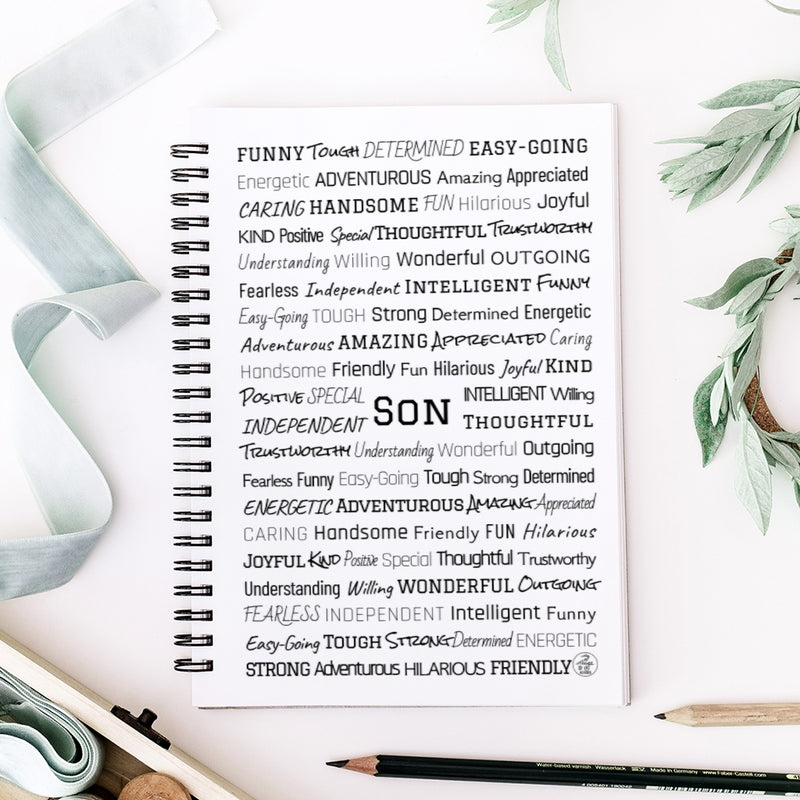 FUNNY TOUGH DETERMINED EASY-GOING
Energetic ADVENTUROUS Amazing Appreciated
CARING HANDSOME FUN Hilarious Joyful
KIND Positive Special THOUGHTFUL TRUSTWORTHY
Understanding Willing Wonderful OUTGOING
Fearless Independent INTELLIGENT FUNNY
Easy-Going TOUGH Strong Determined Energetic
Adventurous AMAZING APPRECIATED Caring
Handsome Friendly Fun Hilarious Joyful KIND
POSITIVE SPECIAL INTELLIGENT Willing
SON
INDEPENDENT THOUGHTFUL
TRUSTWORTHY Understanding Wonderful Outgoing
Fearless Funny Easy-Going Tough Strong Determined
ENERGETIC ADVENTUROUS AMAZING Appreciated
CARING Handsome Friendly FUN Hilarious
JOYFUL KIND Positive Special Thoughtful Trustworthy
Understanding Willing WONDERFUL OUTGOING
FEARLESS INDEPENDENT Intelligent Funny
Easy-Going TOUGH STRONG Determined ENERGETIC
STRONG Adventurous HILARIOUS FRIENDLY
Water-based varnish Wasserlack Made in Germany www.Faber-Castell.com